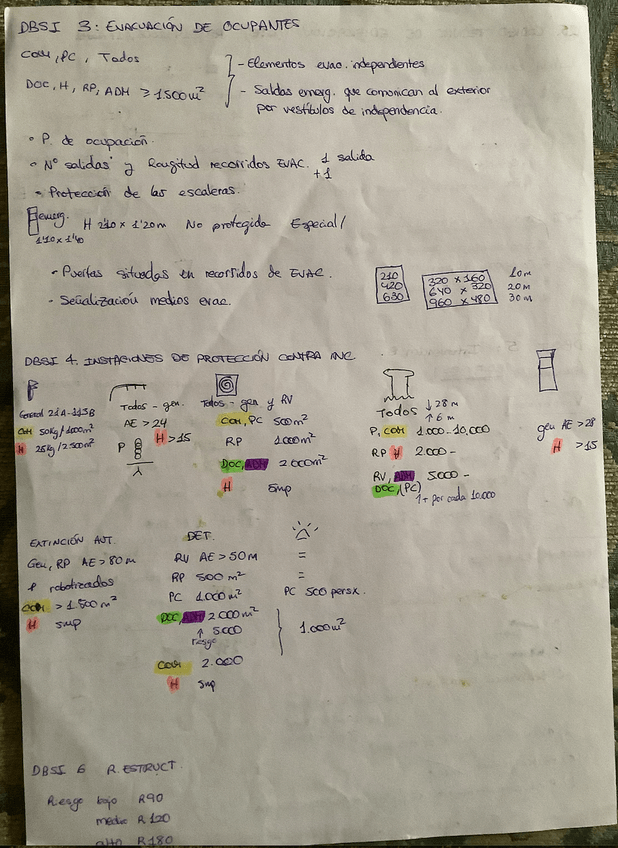 DBSI 3: EVACUACIÓN DE OCUPANTES
COM, PC, Todos
DOC, H, RP, ADM ≥ 1.500 m²
- Elementos evac. independientes
- Salidas emerg. que comunican al exterior
por vestíbulos de independencia.
• P. de ocupación.
• Nº salidas y longitud recorridos EVAC. 1 salida
+1
• Protección de las escaleras.
emerg. H 2'10 x 1'20m No protegida Especial/
1'10 x 1'40
• Puertas situadas en recorridos de EVAC.
• Señalización medios evac.
210
420
630
320 x 160
640 x 320
960 x 480
10 m
20 m
30 m
DBSI 4. INSTACIONES DE PROTECCIÓN CONTRA INC.
General 21A-113B
COM 50Kg/1000m²
H 25Kg/2.500m²
Todos - gen.
AE > 24
H > 15
P
Todos - gen y RV
COM, PC 500m²
RP 1.000m²
DOC, ADM 2.000m²
H smp
Todos ↓28 m
↑6 m
P, COM 1.000-10.000
RP H 2.000 -
RV, ADM 5.000 -
DOC, (PC)
1+ por cada 10.000
gen AE > 28
H > 15
EXTINCIÓN AUT.
Gen, RP AE > 80m
P robotizados
COM > 1.500 m²
H smp
DET.
RV AE > 50m
RP 500 m²
PC 1.000m²
DOC, ADM 2.000m²
↑ 5.000
riesgo
COM 2.000
H smp
=
=
PC 500 persx.
1.000m²
DBSI 6 R. ESTRUCT.
Riesgo bajo R90
medio R120
alto R180